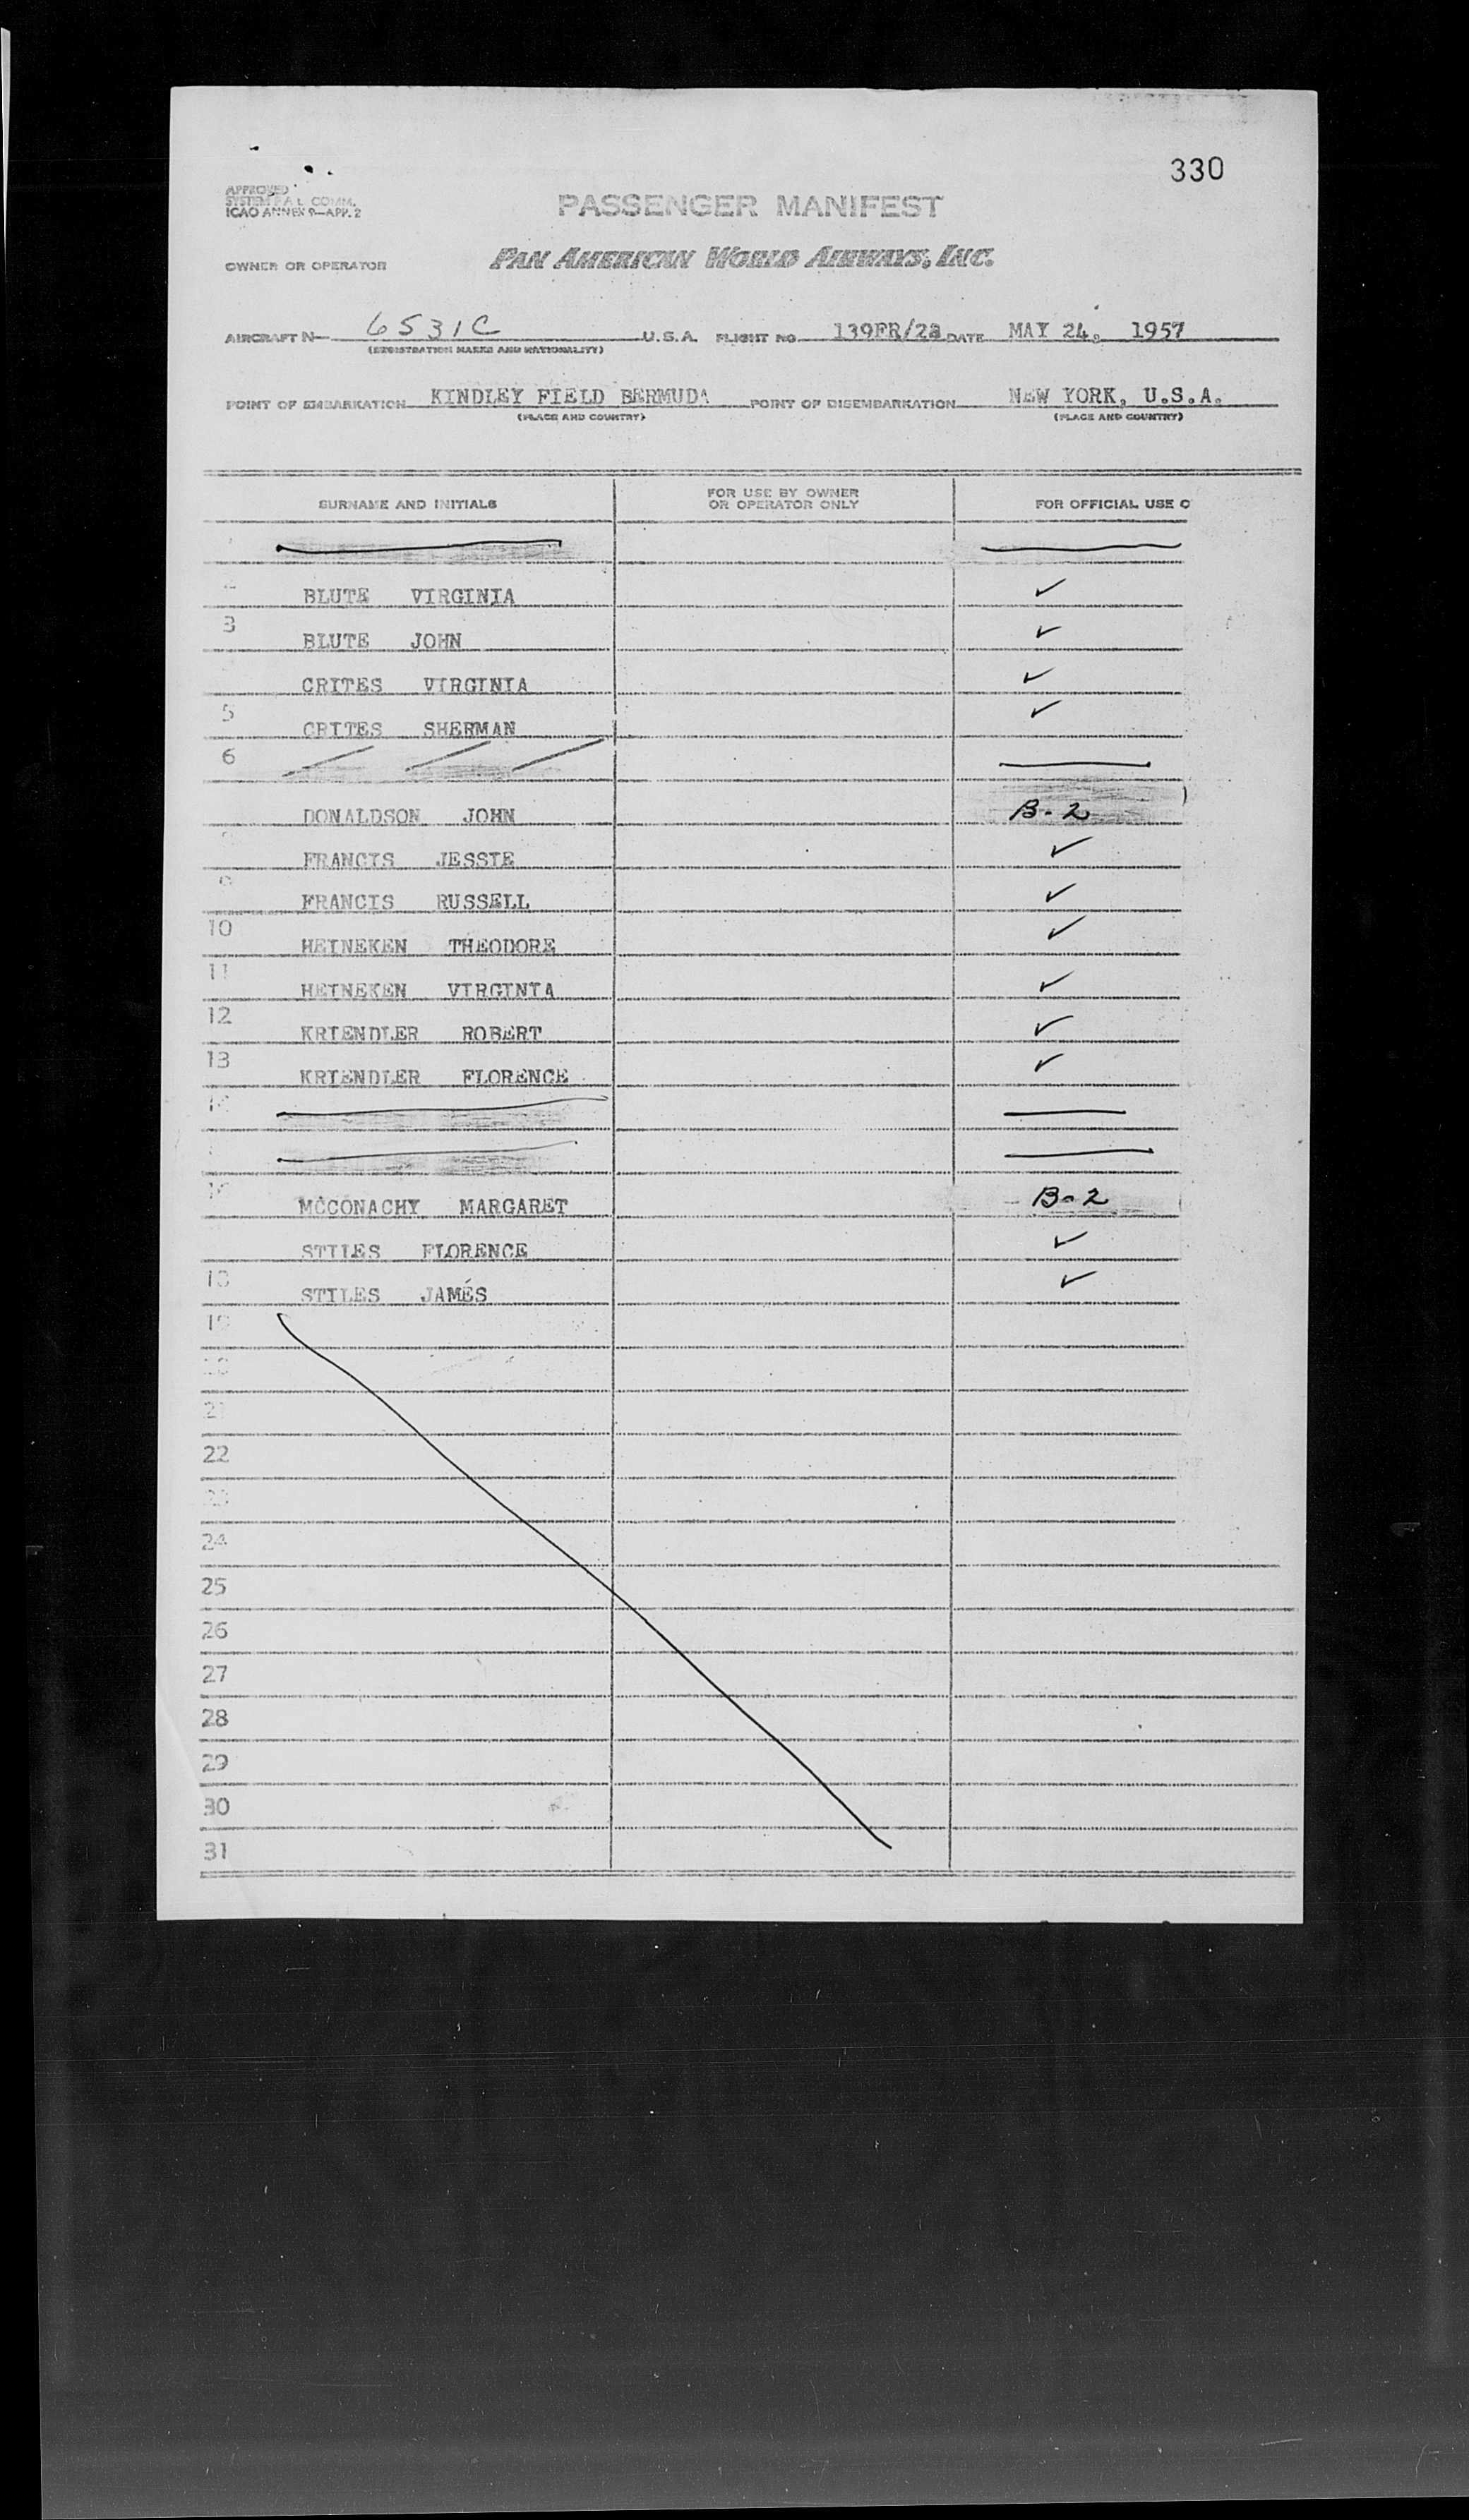 330
APPROVED
SYSTEM F.A.L. COMM.
ICAO ANNEX 9—APP. 2
PASSENGER MANIFEST
OWNER OR OPERATOR PAN AMERICAN WORLD AIRWAYS, INC.
AIRCRAFT N— 6531C U.S.A. FLIGHT NO 139FR/23 DATE MAY 24, 1957
(REGISTRATION MARKS AND NATIONALITY)
POINT OF EMBARKATION KINDLEY FIELD BERMUDA POINT OF DISEMBARKATION NEW YORK, U.S.A.
(PLACE AND COUNTRY) (PLACE AND COUNTRY)
SURNAME AND INITIALS FOR USE BY OWNER OR OPERATOR ONLY FOR OFFICIAL USE O
BLUTE VIRGINIA ✓
3 BLUTE JOHN ✓
CRITES VIRGINIA ✓
5 CRITES SHERMAN ✓
6
DONALDSON JOHN B-2
FRANCIS JESSIE ✓
FRANCIS RUSSELL ✓
10 HEINEKEN THEODORE ✓
11 HEINEKEN VIRGINIA ✓
12 KRIENDLER ROBERT ✓
13 KRIENDLER FLORENCE ✓
16 MCCONACHY MARGARET B-2
STILES FLORENCE ✓
18 STILES JAMES ✓
19
20
21
22
23
24
25
26
27
28
29
30
31